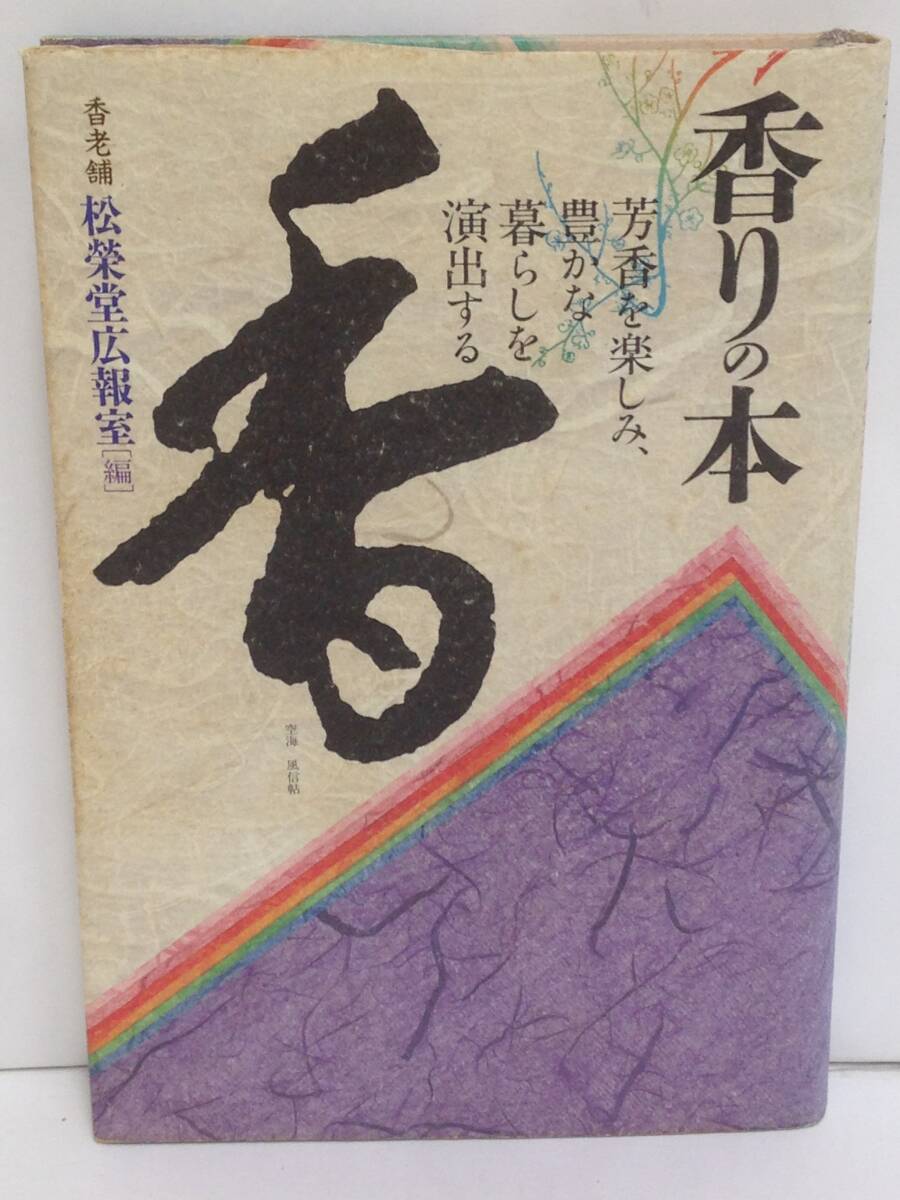 香りの本
芳香を楽しみ、
豊かな
暮らしを
演出する
香
香老舗 松榮堂広報室[編]
空海 風信帖